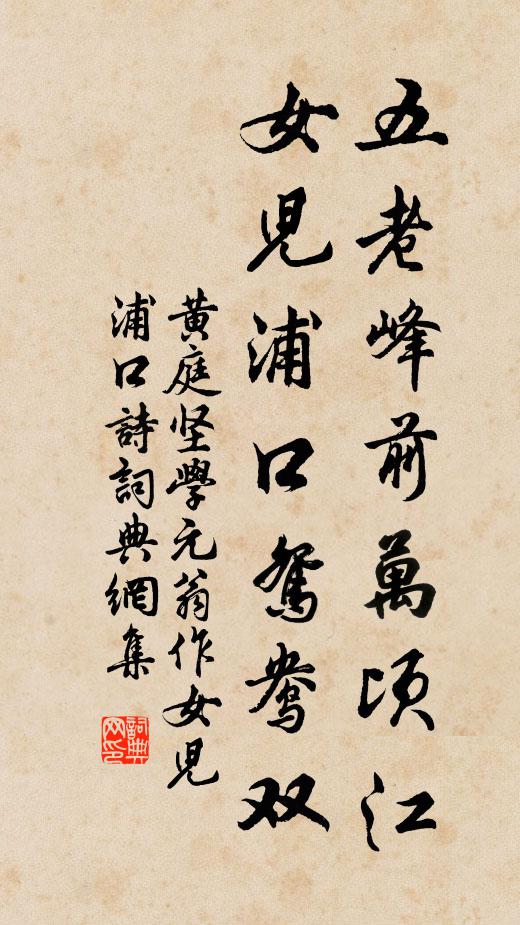 五老峰前萬頃江
女児浦口鴛鴦双
黄庭坚學元翁作女児
浦口詩詞典網集
詞典网印